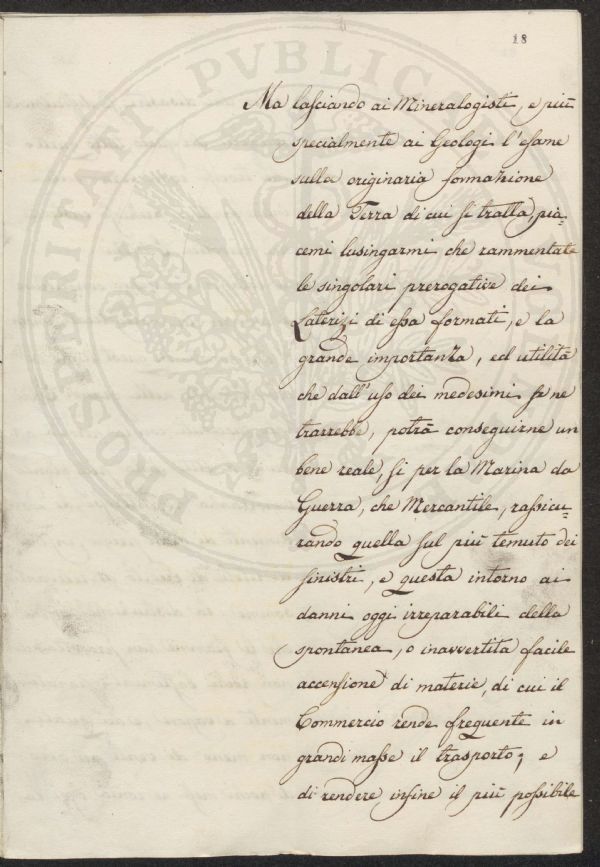 18
Ma lasciando ai Mineralogisti, e più
specialmente ai Geologi l'esame
sulla originaria formazione
della Terra di cui si tratta, pia=
cemi lusingarmi che rammentate
le singolari prerogative dei
Laterizi di essa formati, e la
grande importanza, ed utilità
che dall'uso dei medesimi se ne
trarrebbe, potrà conseguirne un
bene reale, sì per la Marina da
Guerra, che Mercantile, rassicu=
rando quella sul più temuto dei
sinistri, e questa intorno ai
danni oggi irreparabili della
spontanea, o inavvertita facile
accensione di materie, di cui il
Commercio rende frequente in
grandi masse il trasporto; e
di rendere infine il più possibile
PROSPERITATI PVBLICAE